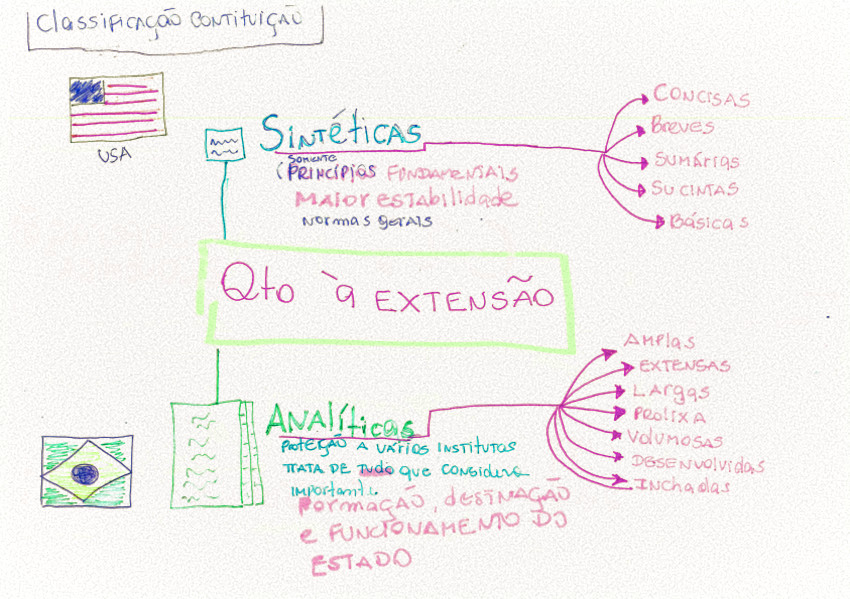 Classificação Contituição
USA
Sintéticas
(somente
Princípios Fundamentais
Maior estabilidade
Normas gerais
Concisas
Breves
Sumárias
Sucintas
Básicas
Qto à Extensão
Analíticas
Proteção a vários institutos
Trata de tudo que considera
important.
Formação, destinação
e funcionamento do
Estado
Amplas
Extensas
Largas
Prolixa
Volumosas
Desenvolvidas
Inchadas